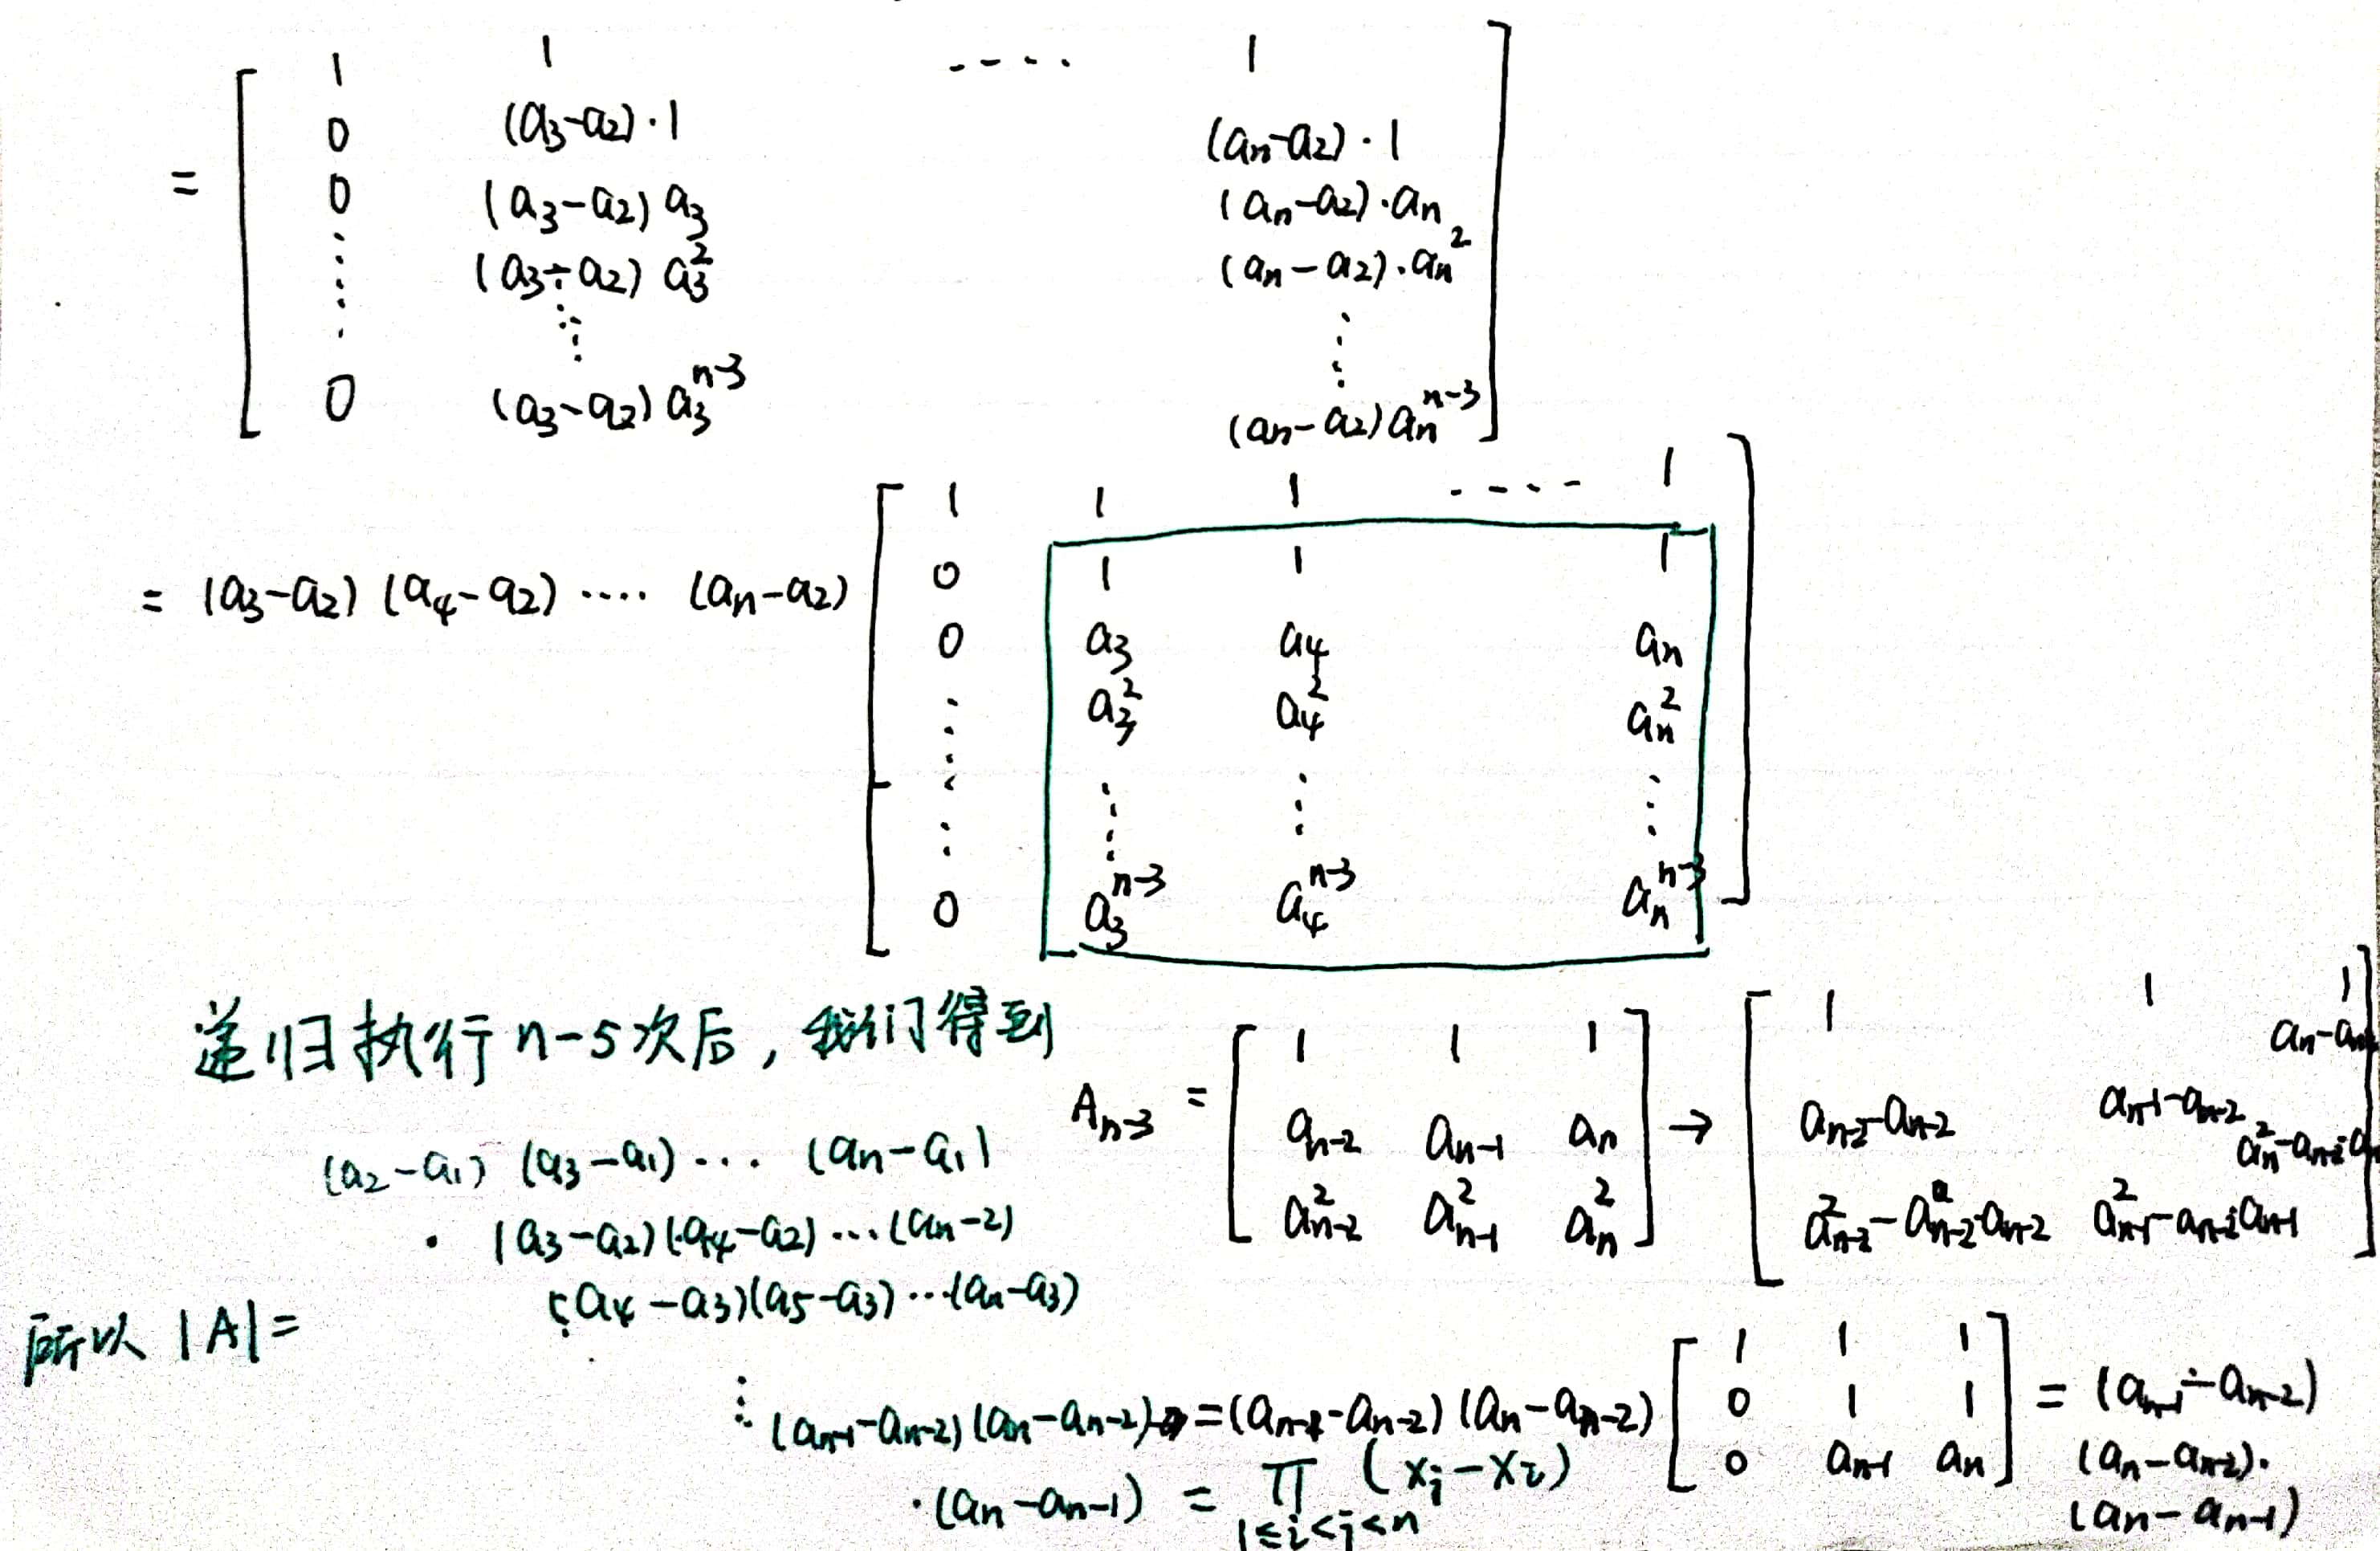 1 1 ---- 1
0 (a₃-a₂)·1 (aₙ-a₂)·1
= 0 (a₃-a₂) a₃ (aₙ-a₂)·aₙ
⋮ (a₃-a₂) a₃² (aₙ-a₂)·aₙ²
⋮ ⋮
0 (a₃-a₂) a₃ⁿ⁻³ (aₙ-a₂) aₙⁿ⁻³
1 1 1 ---- 1
= (a₃-a₂) (a₄-a₂) ···· (aₙ-a₂) 0 1 1 1
0 a₃ a₄ aₙ
⋮ a₃² a₄² aₙ²
⋮ ⋮ ⋮ ⋮
0 a₃ⁿ⁻³ a₄ⁿ⁻³ aₙⁿ⁻³
递归执行n-5次后,我们得到
Aₙ₋₃ = [ 1 1 1
aₙ₋₂ aₙ₋₁ aₙ
aₙ₋₂² aₙ₋₁² aₙ² ]
→ [ 1 1 1
aₙ₋₂-aₙ₋₂ aₙ₋₁-aₙ₋₂
aₙ₋₂²-aₙ₋₂·aₙ₋₂ aₙ₋₁²-aₙ₋₂aₙ₋₁ ]
(a₂-a₁) (a₃-a₁) ··· (aₙ-a₁)
· (a₃-a₂)(a₄-a₂)···(aₙ-2)
(a₄-a₃)(a₅-a₃)···(aₙ-a₃)
所以 |A| =
⋮ (aₙ₋₁-aₙ₋₂)(aₙ-aₙ₋₂)
·(aₙ-aₙ₋₁) = ∏ (xⱼ-xᵢ)
1≤i<j<n
= (aₙ₋₁-aₙ₋₂)(aₙ-aₙ₋₂) [ 1 1 1
0 1 1
0 aₙ₋₁ aₙ ]
= (aₙ₋₁-aₙ₋₂)
(aₙ-aₙ₋₂)·
(aₙ-aₙ₋₁)